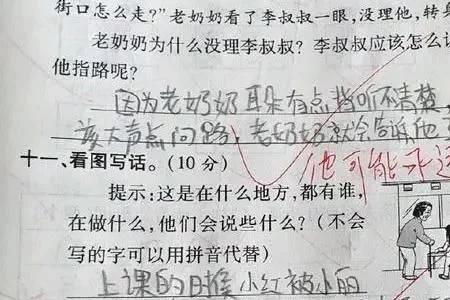 街口怎么走？”老奶奶看了李叔叔一眼，没理他，转身
老奶奶为什么没理李叔叔？李叔叔应该怎么
他指路呢？
因为老奶奶耳朵有点 听不清楚
该大声点问路，老奶奶就会告诉他了
他可能不
十一、看图写话。（10分）
提示：这是在什么地方，都有谁，
在做什么，他们会说些什么？（不会
写的字可以用拼音代替）
上课的时候 小红被小丽